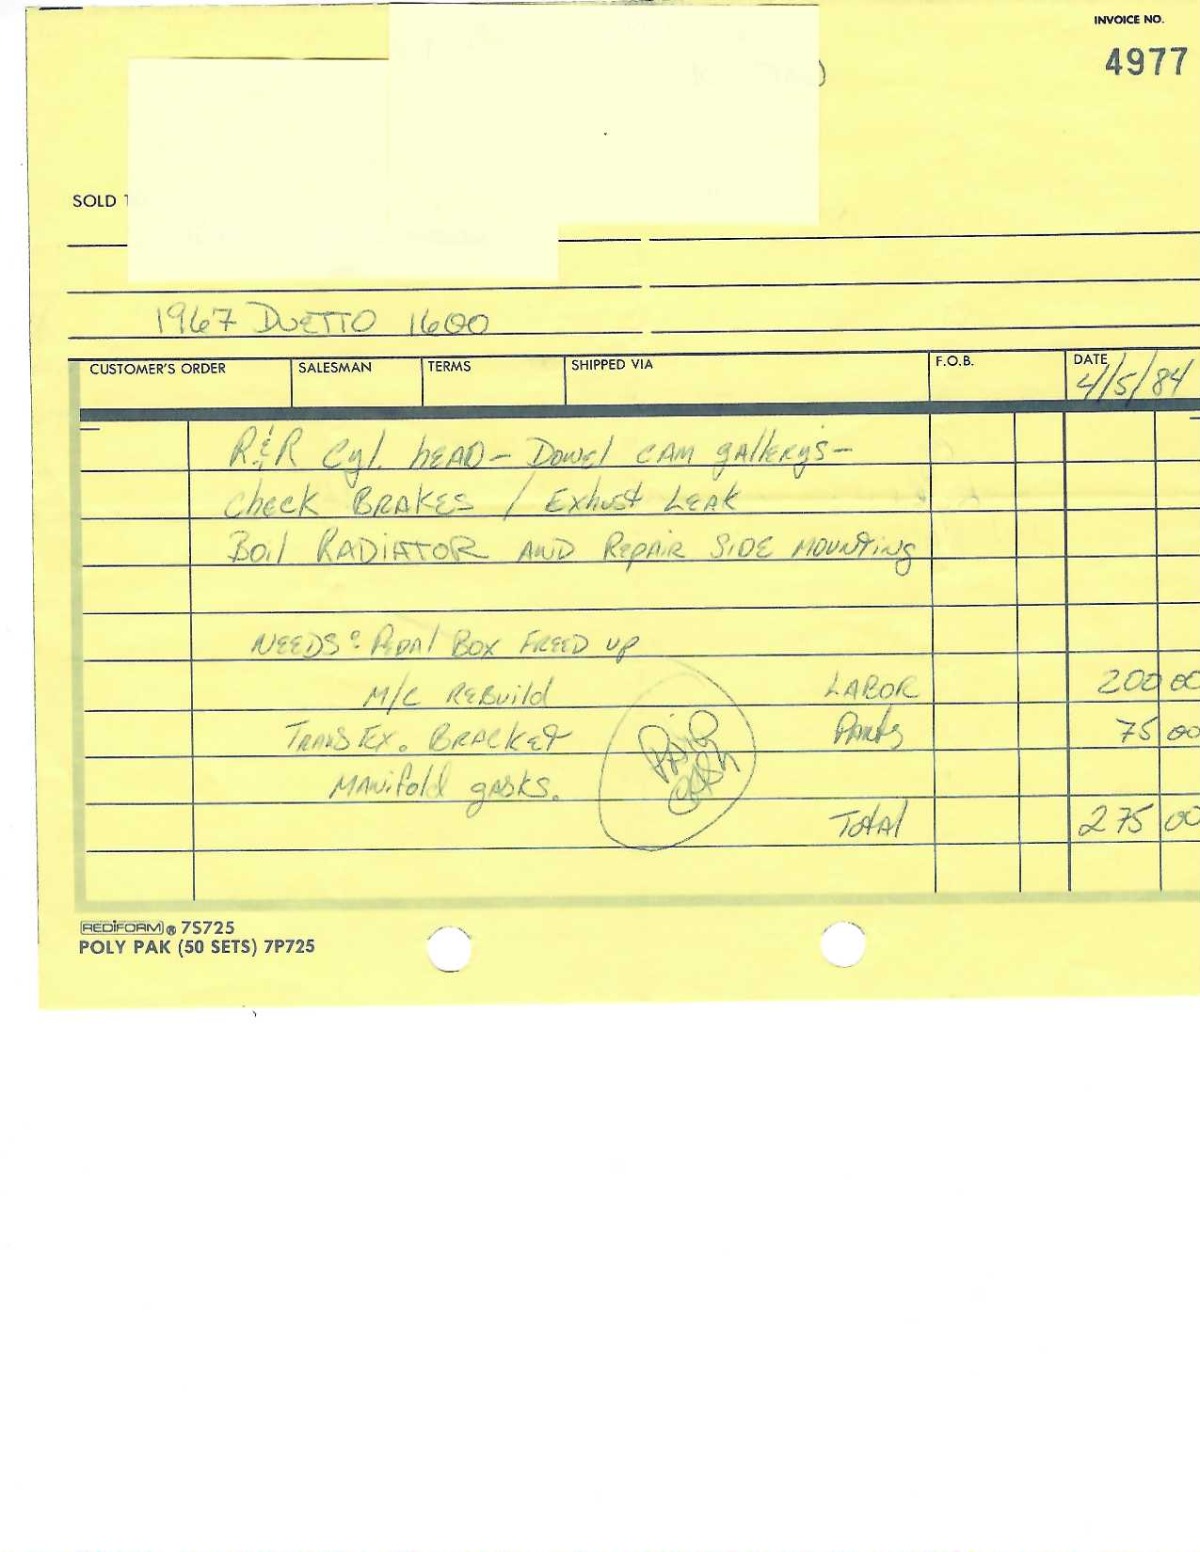 INVOICE NO.
4977
SOLD
1967 DUETTO 1600
CUSTOMER'S ORDER SALESMAN TERMS SHIPPED VIA F.O.B. DATE
4/5/84
R&R Cyl. HEAD - Dowel CAM gallerys -
Check BRAKES / Exhust LEAK
Boil RADIATOR AND Repair SIDE MOUNTING
NEEDS: PEDAl BOX FREED UP
M/C REBuild LABOR 200 00
TRANS EX. BRACKET PARts 75 00
MANifold gASKS.
PAID
CASH
TotAl 275 00
REDIFORM® 7S725
POLY PAK (50 SETS) 7P725